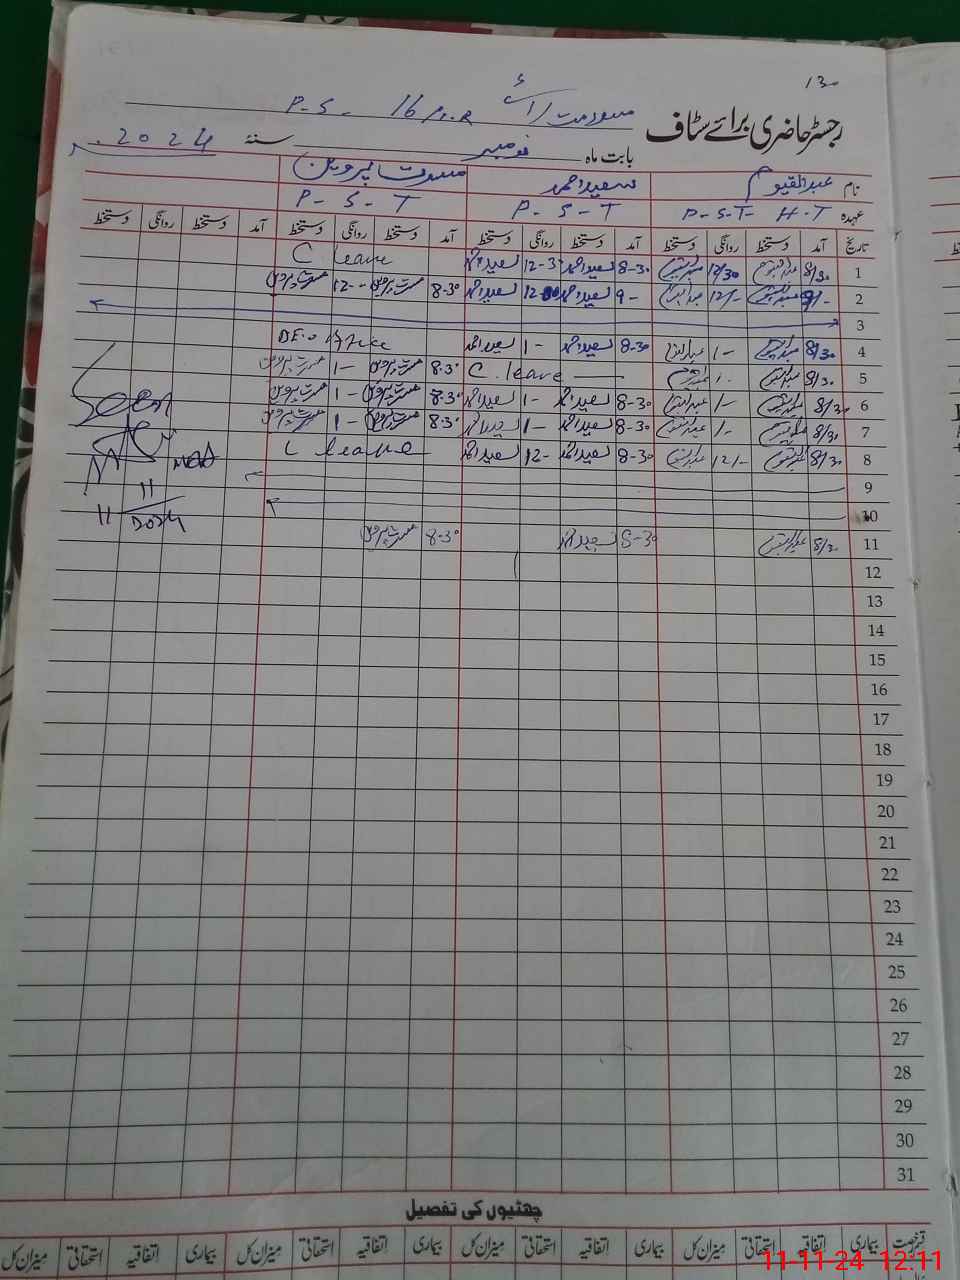 130
رجسٹر حاضری برائے سٹاف P-S- 16
بابت ماہ نومبر سنہ 2024
نام عبدالقیوم سعید احمد مسرت پروین
عہدہ P-S-T- H-T P-S-T P-S-T
تاریخ آمد دستخط روانگی دستخط آمد دستخط روانگی دستخط آمد دستخط روانگی دستخط آمد دستخط روانگی دستخط
1 8/30 12/30 8-30 سعید احمد 12-3 سعید احمد C leave
2 9/- 12/- 9- سعید احمد 12-30 سعید احمد 8-30 مسرت پروین 12-- مسرت پروین
3
4 8/30 1- 8-30 سعید احمد 1- سعید احمد DE.o office
5 8/30 C.leave 8-30 مسرت پروین 1- مسرت پروین
6 8/30 1- 8-30 سعید احمد 1- سعید احمد 8-30 مسرت پروین 1- مسرت پروین
7 8/30 1- 8-30 سعید احمد 1- سعید احمد 8-30 مسرت پروین 1- مسرت پروین
8 8/30 12/- 8-30 سعید احمد 12- سعید احمد C leave
Seen
9
10
11 8/30 8-30 سعید احمد 8-30 مسرت پروین
12
13
14
15
16
17
18
19
20
21
22
23
24
25
26
27
28
29
30
31
چھٹیوں کی تفصیل
بیماری اتفاقیہ استحقاقی میزان کل بیماری اتفاقیہ استحقاقی میزان کل بیماری اتفاقیہ استحقاقی میزان کل بیماری اتفاقیہ استحقاقی میزان کل
11-11-24 12:11